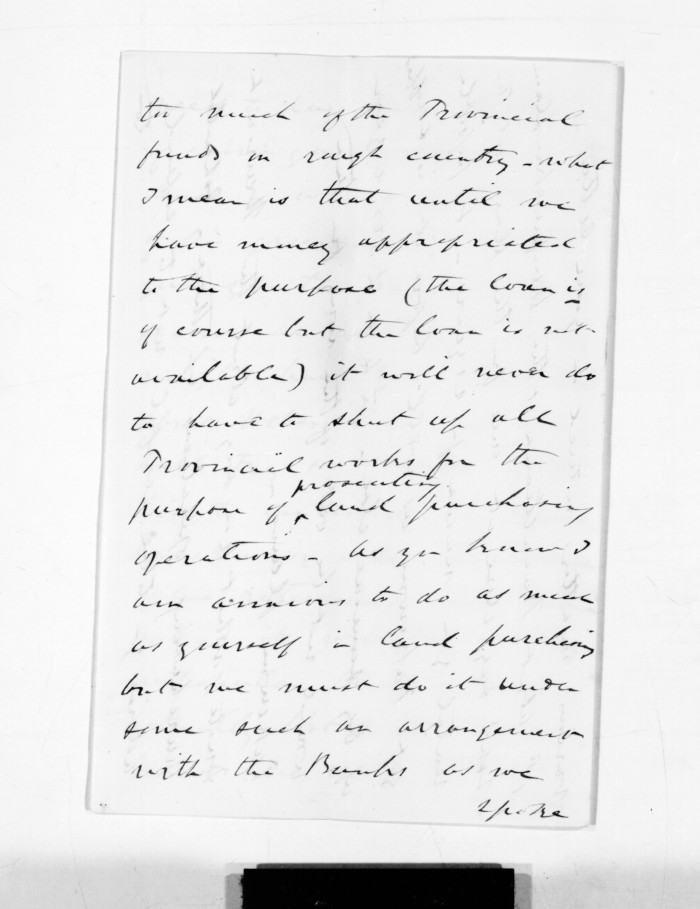 too much of the Provincial
funds on rough country - what
I mean is that until we
have money appropriated
to the purpose (the loan is
of course but the loan is not
available) it will never do
to have to shut up all
Provincial works for the
prosecuting
purpose of ^ land purchasing
operations - as you know I
am anxious to do as much
as yourself in land purchasing
but we must do it under
some such an arrangement
with the Banks as we
spoke